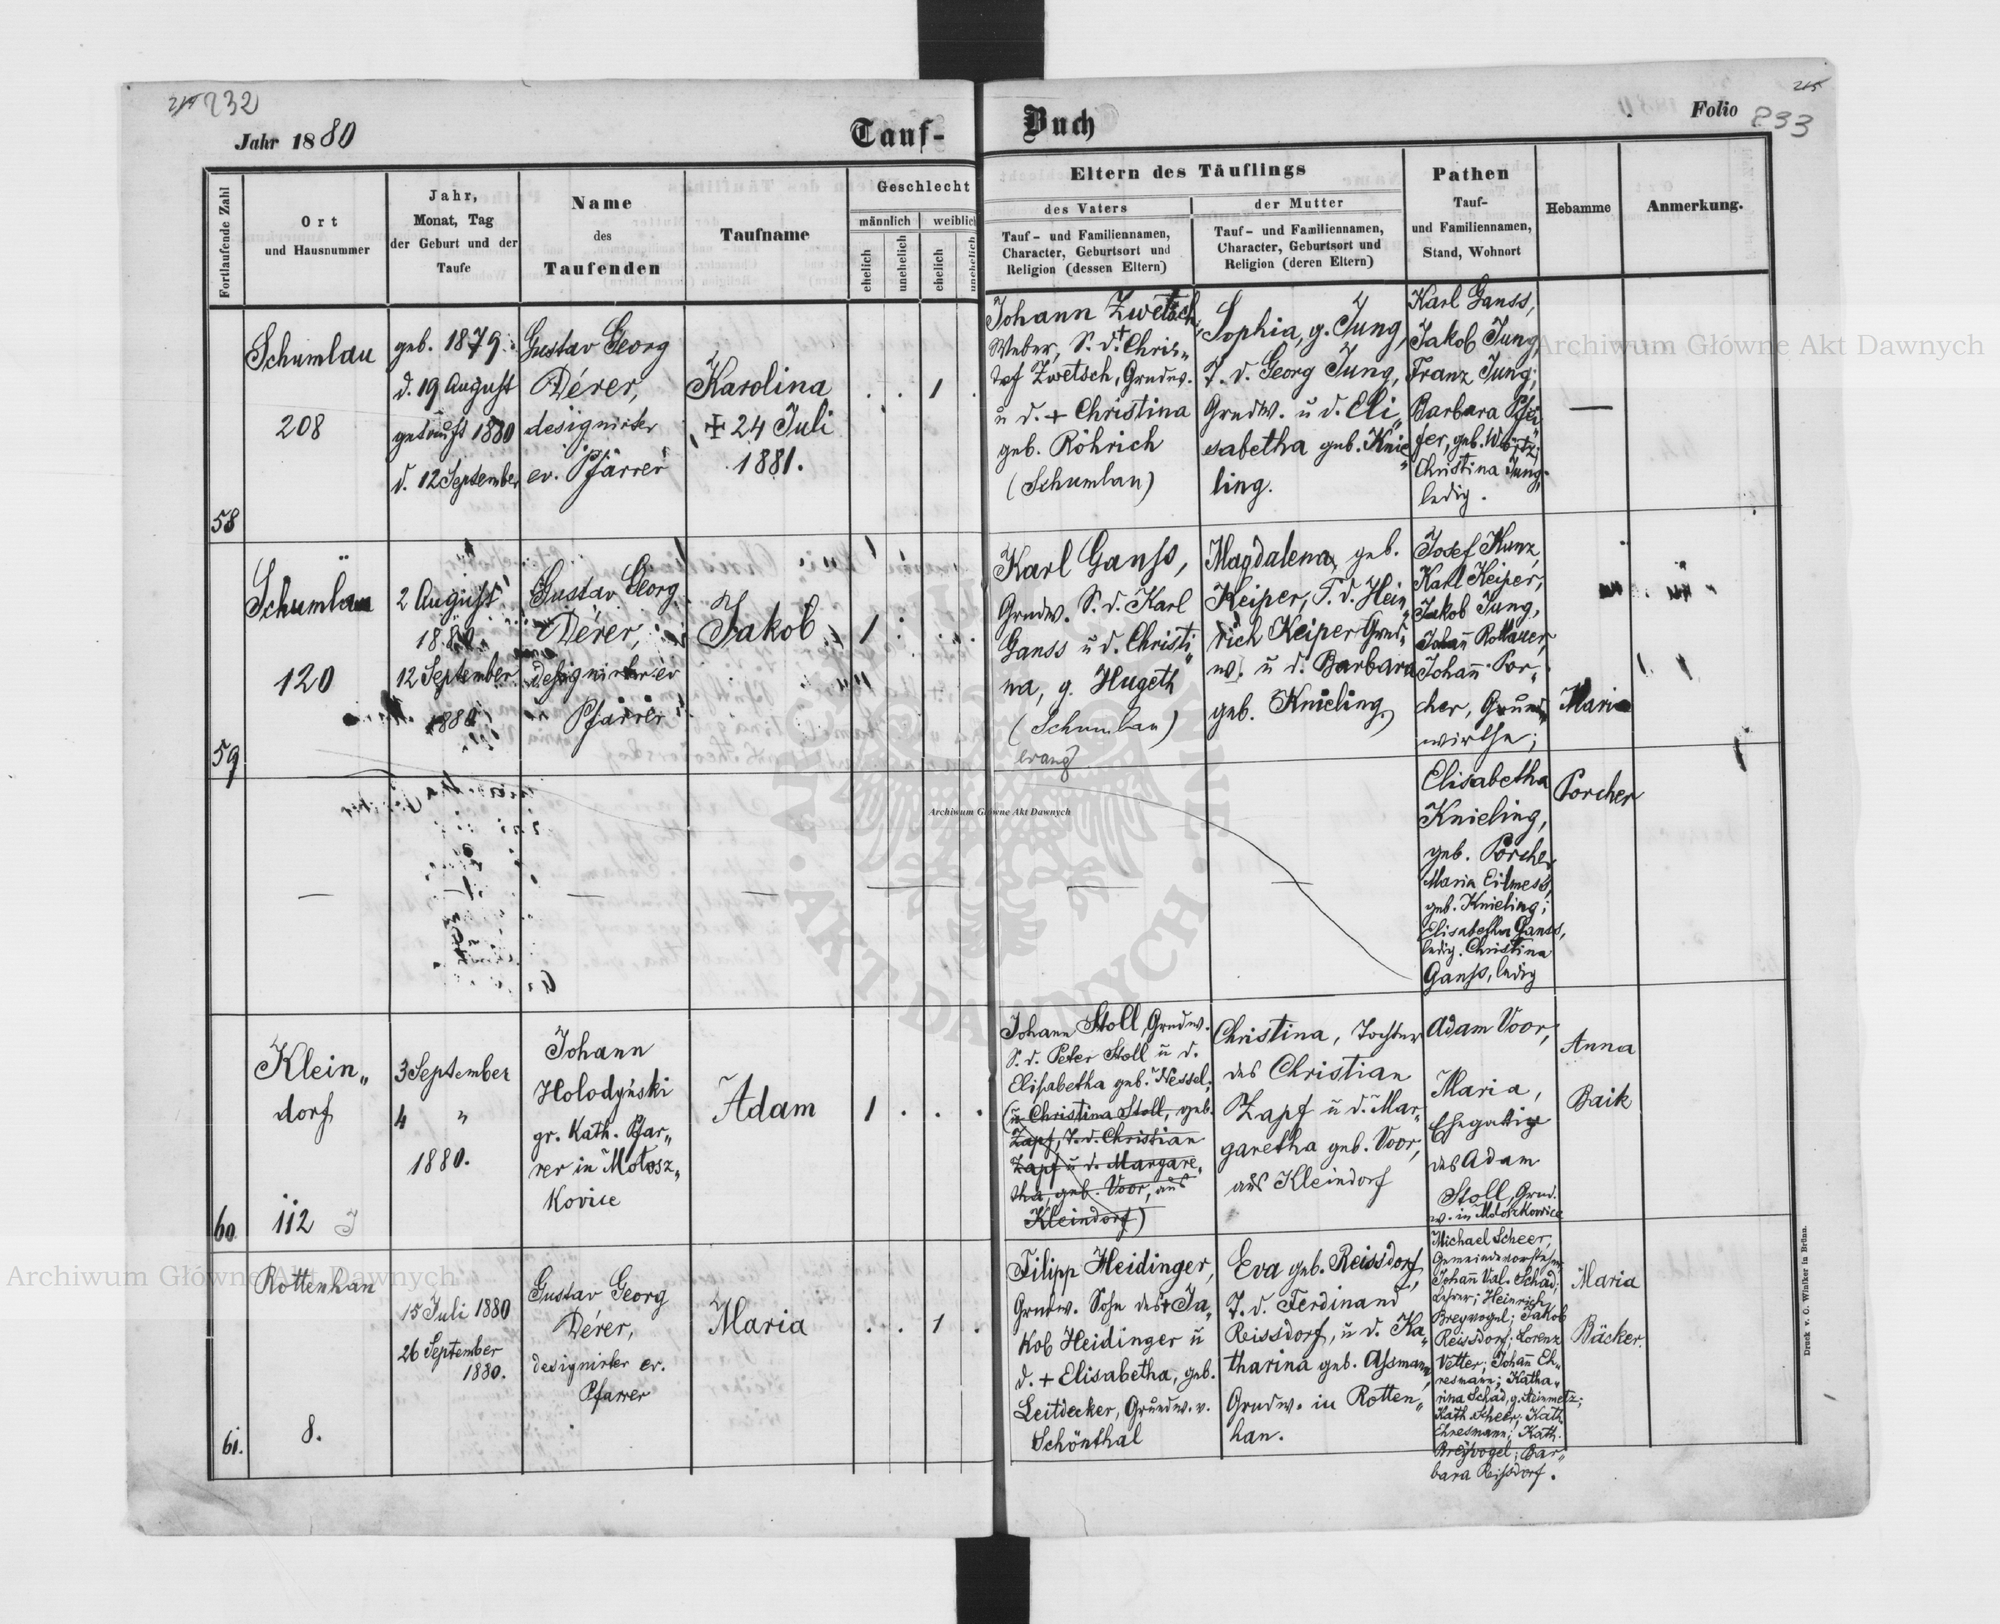 232
Jahr 1880
Tauf-
Buch
Folio
233
215
Fortlaufende Zahl
Ort
und Hausnummer
Jahr,
Monat, Tag
der Geburt und der
Taufe
Name
des
Taufenden
Taufname
Geschlecht
männlich
weiblich
ehelich
unehelich
ehelich
unehelich
Eltern des Täuflings
des Vaters
Tauf- und Familiennamen,
Character, Geburtsort und
Religion (dessen Eltern)
der Mutter
Tauf- und Familiennamen,
Character, Geburtsort und
Religion (deren Eltern)
Pathen
Tauf-
und Familiennamen,
Stand, Wohnort
Hebamme
Anmerkung.
58
Schumlau
208
geb. 1879.
d. 19 August
getauft 1880
d. 12 September
Gustav Georg
Dérer,
designirter
ev. Pfarrer
Karolina
+ 24 Juli
1881.
1
Johann Zwetsch,
Weber, S. d. + Chris„
tof Zwetsch, Grndw.
u d. + Christina
geb. Röhrich
(Schumlau)
Sophia, g. Jung,
T. d. Georg Jung,
Grndw. u d. Eli„
sabetha geb. Knie„
ling.
Karl Ganss,
Jakob Jung,
Franz Jung;
Barbara Pfei„
fer, geb. Würtz;
Christina Jung,
ledig.
—
59
Schumlau
120
2 August
1880
12 September
1880
Gustav Georg
Dérer,
designirter ev
Pfarrer
Jakob
1
Karl Ganss,
Grndw. S. d. Karl
Ganss u d. Christi„
na, g. Hugeth
(Schumlau)
evang
Magdalena, geb.
Keiper, T. d. Hein„
rich Keiper Grnd„
w. u d. Barbara
geb. Knieling.
Josef Kunz,
Karl Keiper,
Jakob Jung,
Johann Rollauer,
Johann Por„
cher, Grund„
wirthe;
Elisabetha
Knieling,
geb. Porcher
Maria Eilmess,
geb. Knieling;
Elisabetha Ganss,
ledig. Christina
Ganss, ledig
Maria
Porcher
60
Klein„
dorf
112
3 September
4 "
1880.
Johann
Holodyński
gr. Kath. Pfar„
rer in Mołosz„
kovice
Adam
1
Johann Stoll, Grndw.
S. d. Peter Stoll u d.
Elisabetha geb. Nessel,
(u Christina Stoll, geb.
Zapf, T. d. Christian
Zapf u d. Margare„
tha, geb. Voor, aus
Kleindorf)
Christina, Tochter
des Christian
Zapf u d. Mar„
garetha geb. Voor,
aus Kleindorf
Adam Voor,
Maria,
Ehegattin
des Adam
Stoll, Grnd.
w. in Moloszkowice
Anna
Baik
61.
Rottenhan
8.
15 Juli 1880
26 September
1880.
Gustav Georg
Dérer,
designirter ev.
Pfarrer
Maria
1
Filipp Heidinger,
Grndw. Sohn des + Ja„
kob Heidinger u
d. + Elisabetha, geb.
Leitdecker, Grundw. v.
Schönthal
Eva geb. Reissdorf,
T. d. Ferdinand
Reissdorf, u d. Ka„
tharina geb. Assmann,
Grndw. in Rotten„
han.
Michael Scheer,
Gemeindevorsteher,
Johann Val. Schäd,
Lehrer; Heinrich
Breyvogel; Jakob
Reissdorf; Lorenz
Vetter; Johann Eh„
resmann; Katha„
rina Schäd, g. Steinmetz;
Kath. Scheer; Kath.
Ehresmann; Kath.
Breyvogel; Bar„
bara Reissdorf.
Maria
Bäcker.
Druck v. G. Winiker in Brünn.
Archiwum Główne Akt Dawnych
Archiwum Główne Akt Dawnych
Archiwum Główne Akt Dawnych